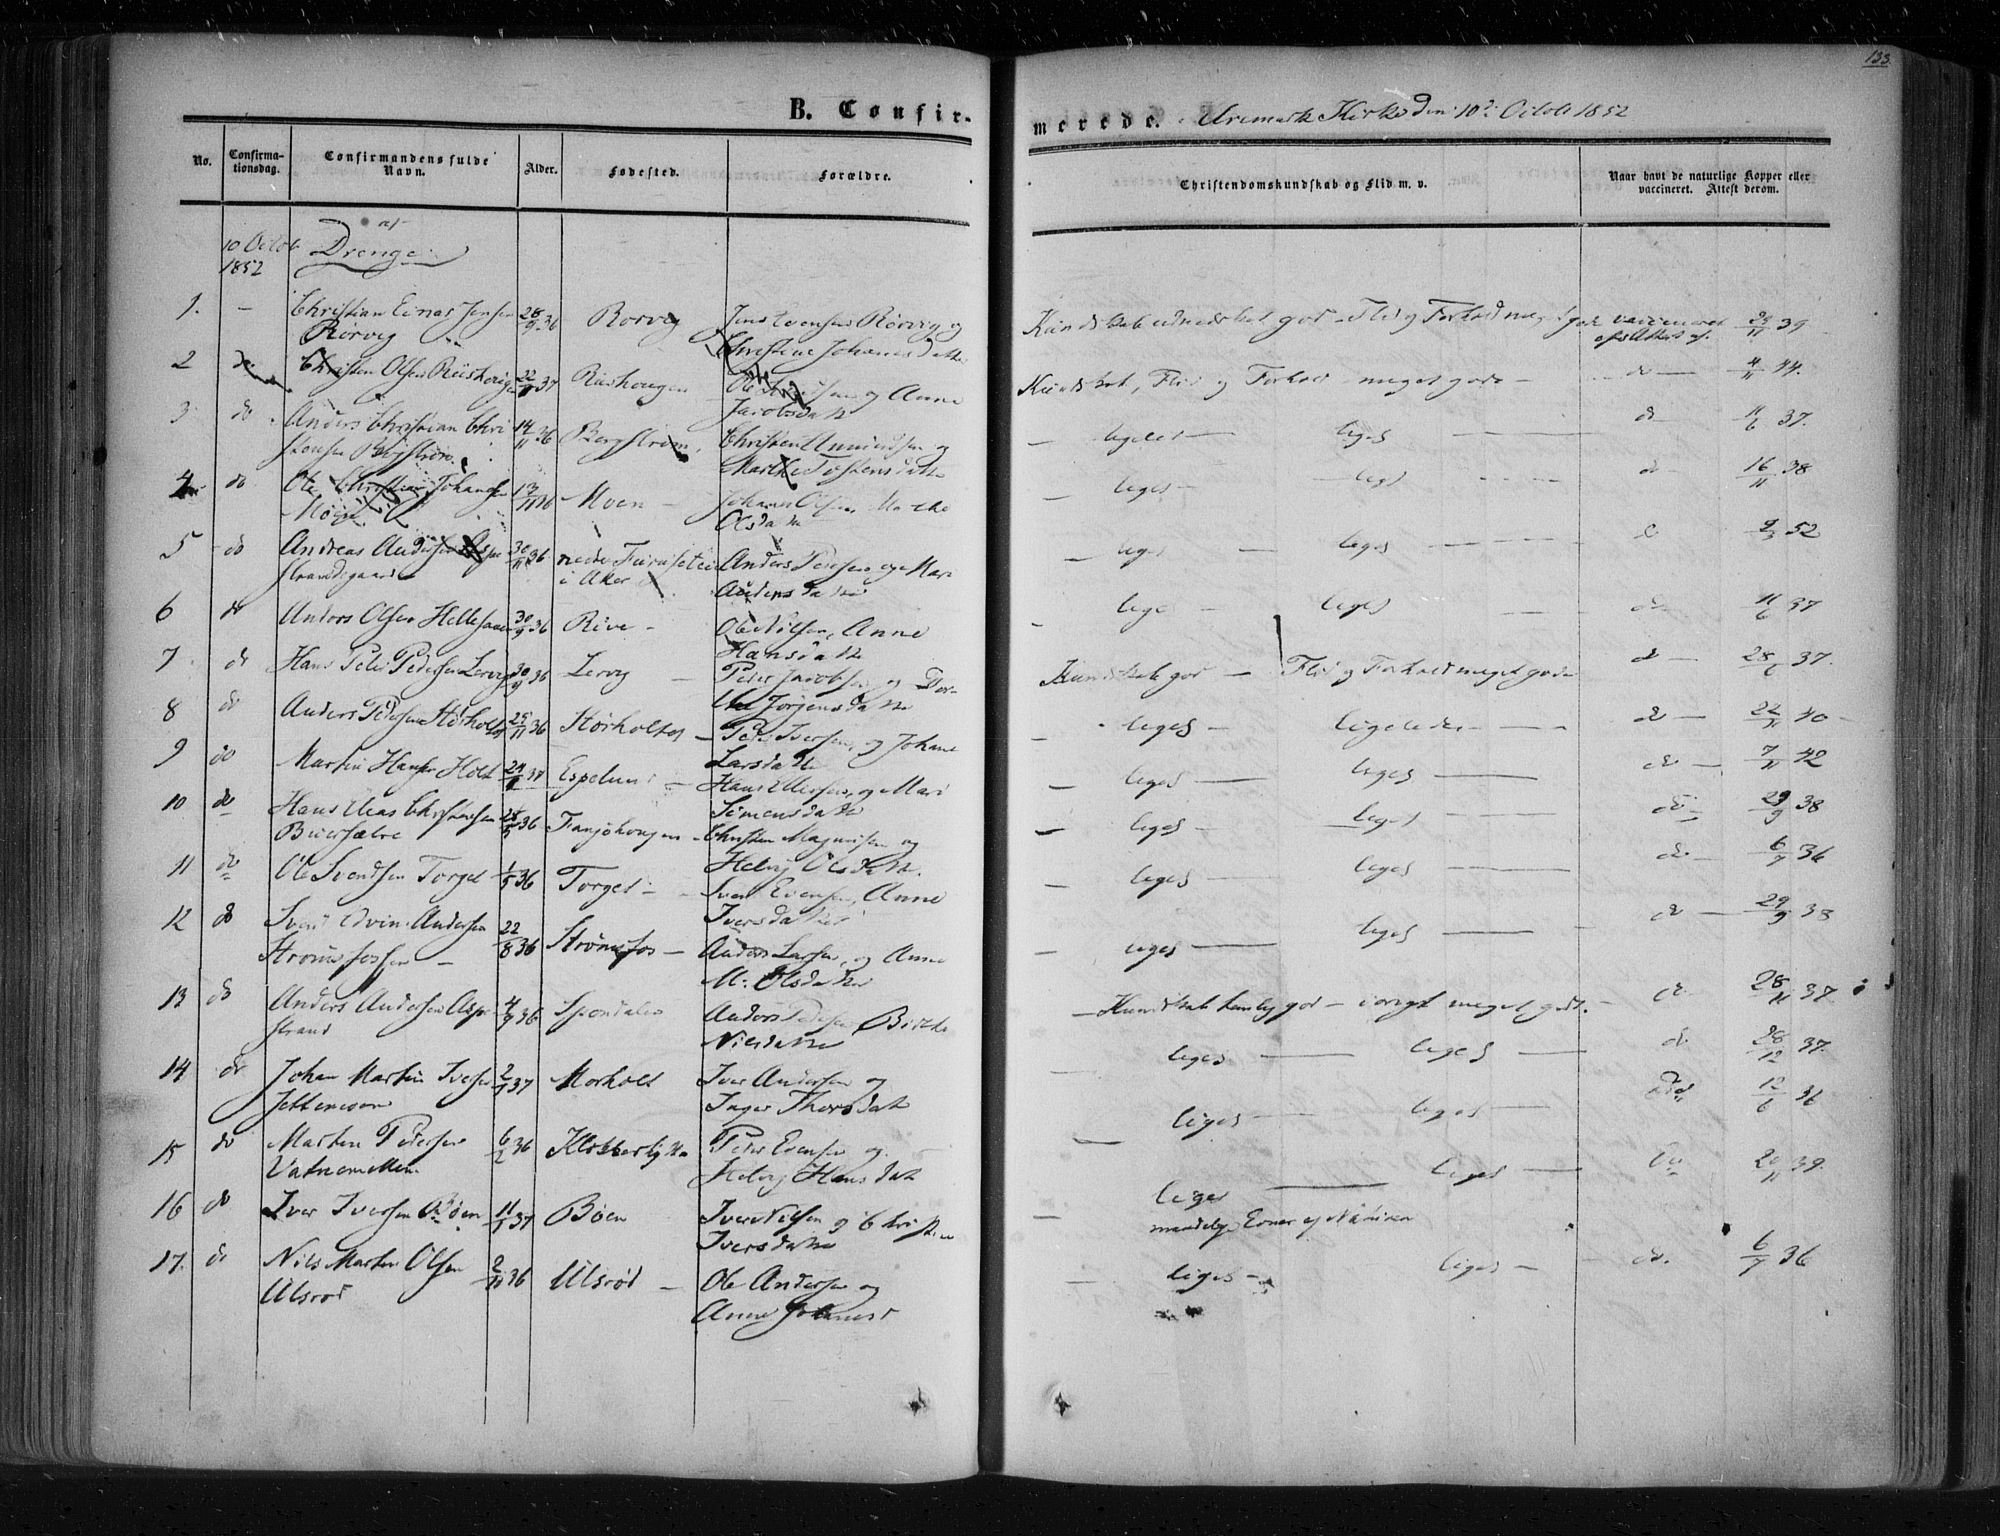 133
B. Confirmerede. Aremark Kirke den 10de Octob 1852
No.
Confirmationsdag.
Confirmandens fulde Navn.
Alder.
Fødested.
Forældre.
Christendomskundskab og Flid m. v.
Naar havt de naturlige Kopper eller vaccineret. Attest derom.
10 Octob 1852
Drenge
1. — Christian Einar Jensen Rørvig 28/9 36 Rørvig Jens Evensen Rørvig og Christine Johannesdatter Kundskab udmærket god — Flid og Forhold meget gode vaccineret efter Attest af 24/11 39
2 do Christen Olsen Riishougen 22/ 37 Riishougen Ole og Anne Jacobsdatter Kundskab, Flid og Forhold meget gode — do — 4/11 44.
3 do Anders Christian Christensen Bergstrøm 14/11 36 Bergstrøm Christen Amundsen og Marthe Tostensdatter — ligeledes — liges — do 11/6 37.
4 do Ole Christian Johansen Moen 13/11 36 Moen — Johan Olsen, Marthe Olsdatter — liges — liges do 16/11 38
5 do Andreas Andersen Aspestrandsgaard 30/11 36 nedre Furusetie i Aker Anders Pedersen og Mari Andersdatter — liges — liges — d 2/3 52
6 do Anders Olsen Hellesaaen 30/9 36 Rive — Ole Nilsen, Anne Hansdatter — lige — liges — do 11/6 37
7 do Hans Peter Pedersen Lervig 30/9 36 Lervig — Peder Jacobsen og Dorthe Jørgensdatter Kundskab god — Flid og Forhold meget gode do — 28/6 37.
8 do Anders Pedersen Størholtet 25/11 36 Størholtet — Peder Iversen, og Johane Larsdatter — liges — ligeledes — do — 22/11 40 —
9 do Martin Hansen Holt 24/ 37 Espelund — Hans Ellersen, og Mari Simensdatter — liges — liges — do — 7/11 42
10 do Hans Elias Christensen Buersætre 28/5 36 Fanjøhougen — Christen Magnusen og Helvig Olsdatter — liges — liges — do 29/9 38
11 do Ole Svendsen Torget 1/5 36 Torget — Svend Evensen, Anne Iversdatter — liges — liges — do — 6/7 36
12 do Svend Edvin Andersen Strømsfossen — 22/8 36 Strømsfos — Anders Larsen, og Anne M. Olsdatter — liges — liges — do — 29/9 38
13 do Anders Andersen Aspestrand 4/9 36 Spondalen Anders Pedersen Birthe Nilsdatter — Kundskab temlig god — iøvrigt meget godt. — do 28/11 37
14 do Johan Martin Iversen 2/1 37 Morholt Iver Andersen og Inger Thorsdatter liges — liges — do 28/12 37.
15 do Martin Pedersen 6/2 36 Peder Evensen og Helvig Hansdatter liges — liges — 12/6 36
16 do Iver Iversen Bøen 11/1 37 Bøen — Iver Nilsen og Christine Iversdatter — liges — liges — do 20/11 39.
maadelige Evner af Naturen
17. do Nils Martin Olsen Ulsrød 2/11 36 Ulsrød — Ole Andersen og Anne Johannesd — liges — liges — do. 6/7 36